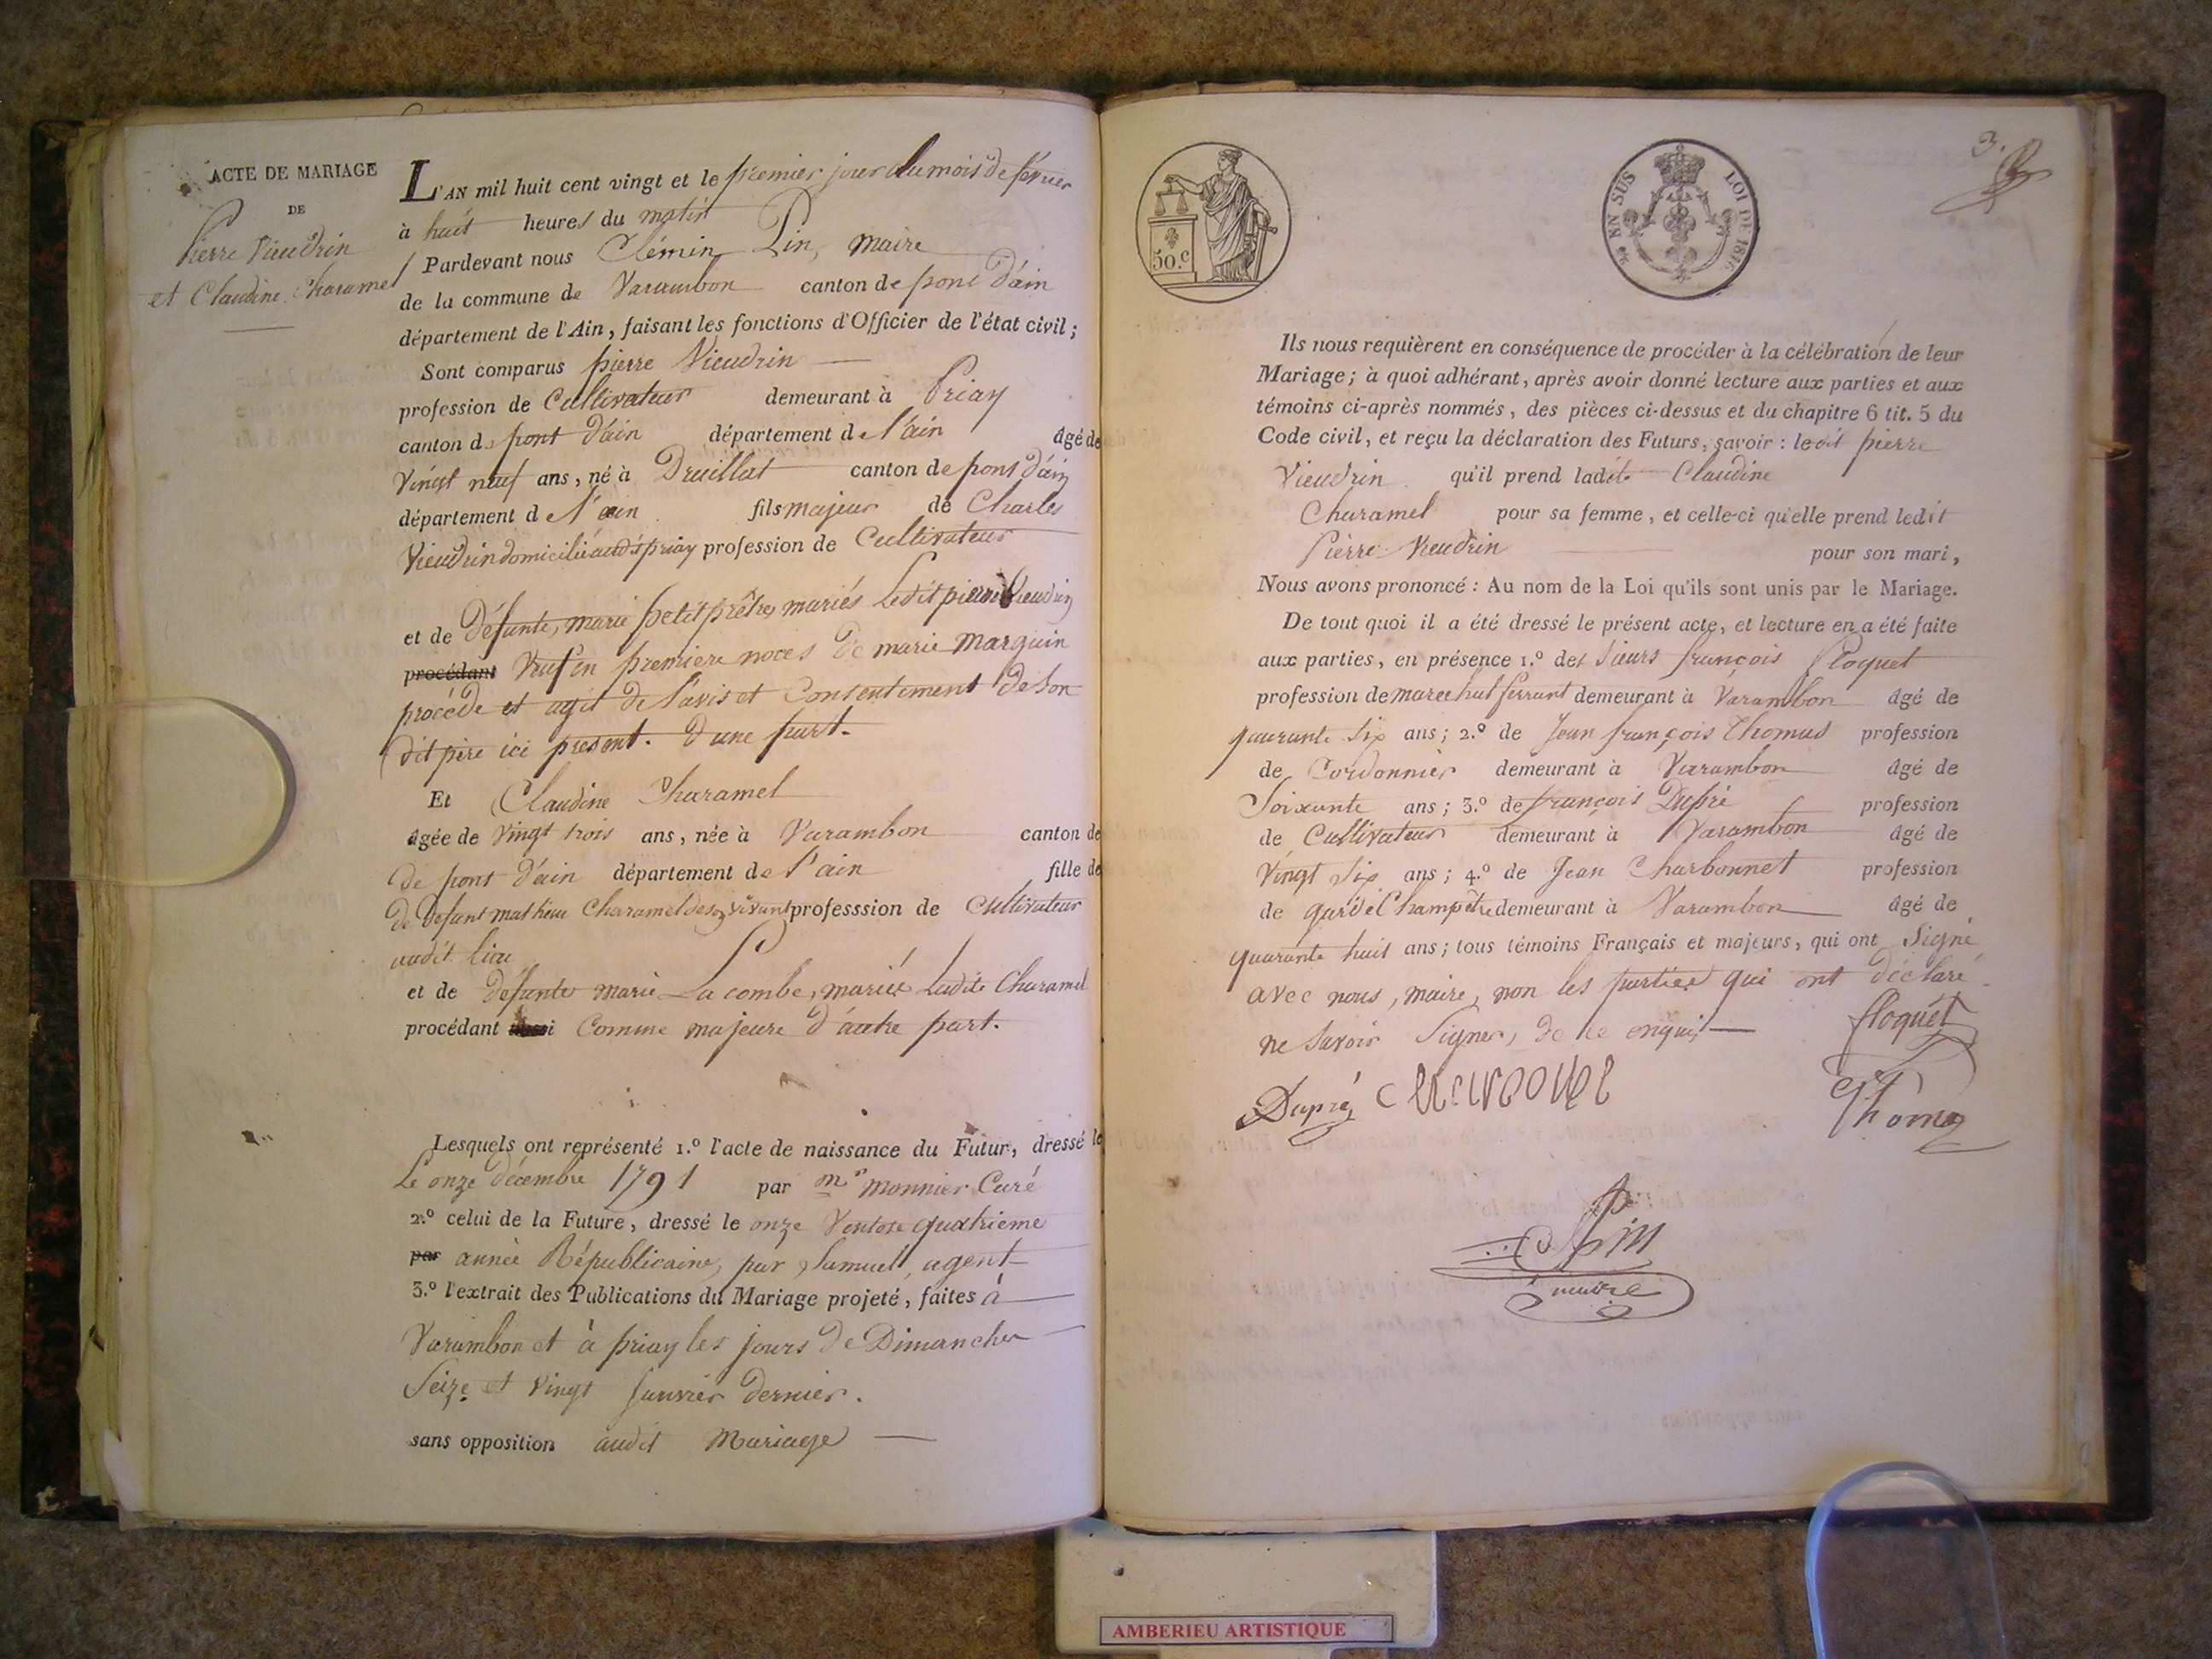 ACTE DE MARIAGE
DE
Pierre Vieudrin
et Claudine Charamel
L'AN mil huit cent vingt et le premier jour du mois de février
à huit heures du matin
Pardevant nous Clémin Pin, maire
de la commune de Varambon canton de pont d'ain
département de l'Ain, faisant les fonctions d'Officier de l'état civil;
Sont comparus pierre Vieudrin
profession de Cultivateur demeurant à Priay
canton de pont d'ain département de l'ain âgé de
Vingt neuf ans, né à Druillat canton de pont d'ain
département de l'ain fils majeur de Charles
Vieudrin domicilié audit priay profession de Cultivateur
et de défunte, marie petit prêtre mariés Ledit pierre Vieudrin
procédant Veuf en premiere noces de marie marguin
procède et agit de l'avis et Consentement de son
dit père ici present. d'une part.
Et Claudine Charamel
âgée de vingt trois ans, née à Varambon canton de
de pont d'ain département de l'ain fille de
de défunt mathieu Charamel de son vivant professsion de Cultivateur
audit lieu
et de défunte marie La combe, mariés Ladite Charamel
procédant Comme majeure d'autre part.
Lesquels ont représenté 1.º l'acte de naissance du Futur, dressé le
Le onze décembre 1791 par mr monnier Curé
2.º celui de la Future, dressé le onze Ventose quatrieme
par année Républicaine, par Samuel, agent
3.º l'extrait des Publications du Mariage projeté, faites à
Varambon et à priay les jours de Dimanche
Seize et vingt Janvier dernier.
sans opposition audit Mariage
3.
50.c
NN SUS LOI DE 1816
Ils nous requièrent en conséquence de procéder à la célébration de leur
Mariage; à quoi adhérant, après avoir donné lecture aux parties et aux
témoins ci-après nommés, des pièces ci-dessus et du chapitre 6 tit. 5 du
Code civil, et reçu la déclaration des Futurs, savoir : ledit pierre
Vieudrin qu'il prend ladite Claudine
Charamel pour sa femme, et celle-ci qu'elle prend ledit
Pierre Vieudrin pour son mari,
Nous avons prononcé : Au nom de la Loi qu'ils sont unis par le Mariage.
De tout quoi il a été dressé le présent acte, et lecture en a été faite
aux parties, en présence 1.º des Sieurs françois Floquet
profession de marechal ferrant demeurant à Varambon âgé de
quarante six ans; 2.º de Jean françois Thomas profession
de Cordonnier demeurant à Varambon âgé de
Soixante ans; 3.º de françois Dupré profession
de Cultivateur demeurant à Varambon âgé de
Vingt Six ans; 4.º de Jean Charbonnet profession
de garde Champêtre demeurant à Varambon âgé de
quarante huit ans; tous témoins Français et majeurs, qui ont Signé
avec nous, maire, non les parties qui ont déclaré
ne savoir Signer, de ce enquis
floquet
Dupré
Thoma
Pin
maire
AMBERIEU ARTISTIQUE